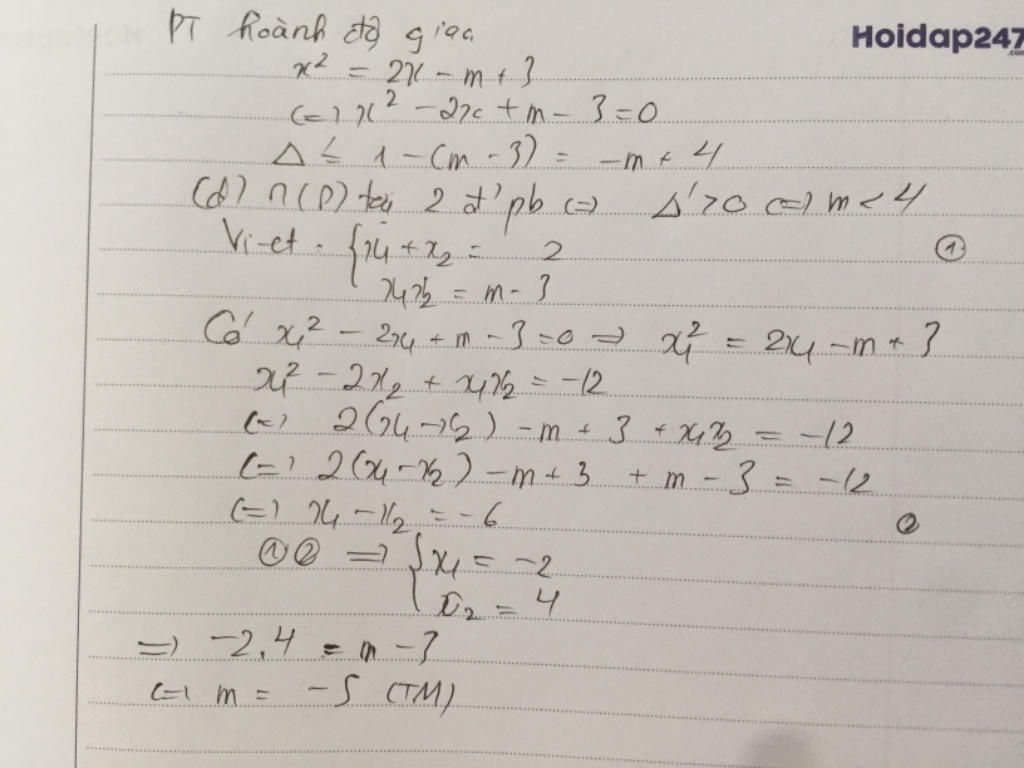 PT hoành độ giao
Hoidap247.com
x² = 2x - m + 3
(=) x² - 2x + m - 3 = 0
Δ' = 1 - (m - 3) = -m + 4
(d) ∩ (P) tại 2 đ' pb (=) Δ' > 0 (=) m < 4
Vi-et : { x₁ + x₂ = 2 ①
x₁x₂ = m - 3
Có x₁² - 2x₁ + m - 3 = 0 => x₁² = 2x₁ - m + 3
x₁² - 2x₂ + x₁x₂ = -12
(=) 2(x₁ - x₂) - m + 3 + x₁x₂ = -12
(=) 2(x₁ - x₂) - m + 3 + m - 3 = -12
(=) x₁ - x₂ = -6 ②
①② => { x₁ = -2
x₂ = 4
=> -2.4 = m - 3
(=) m = -5 (TM)